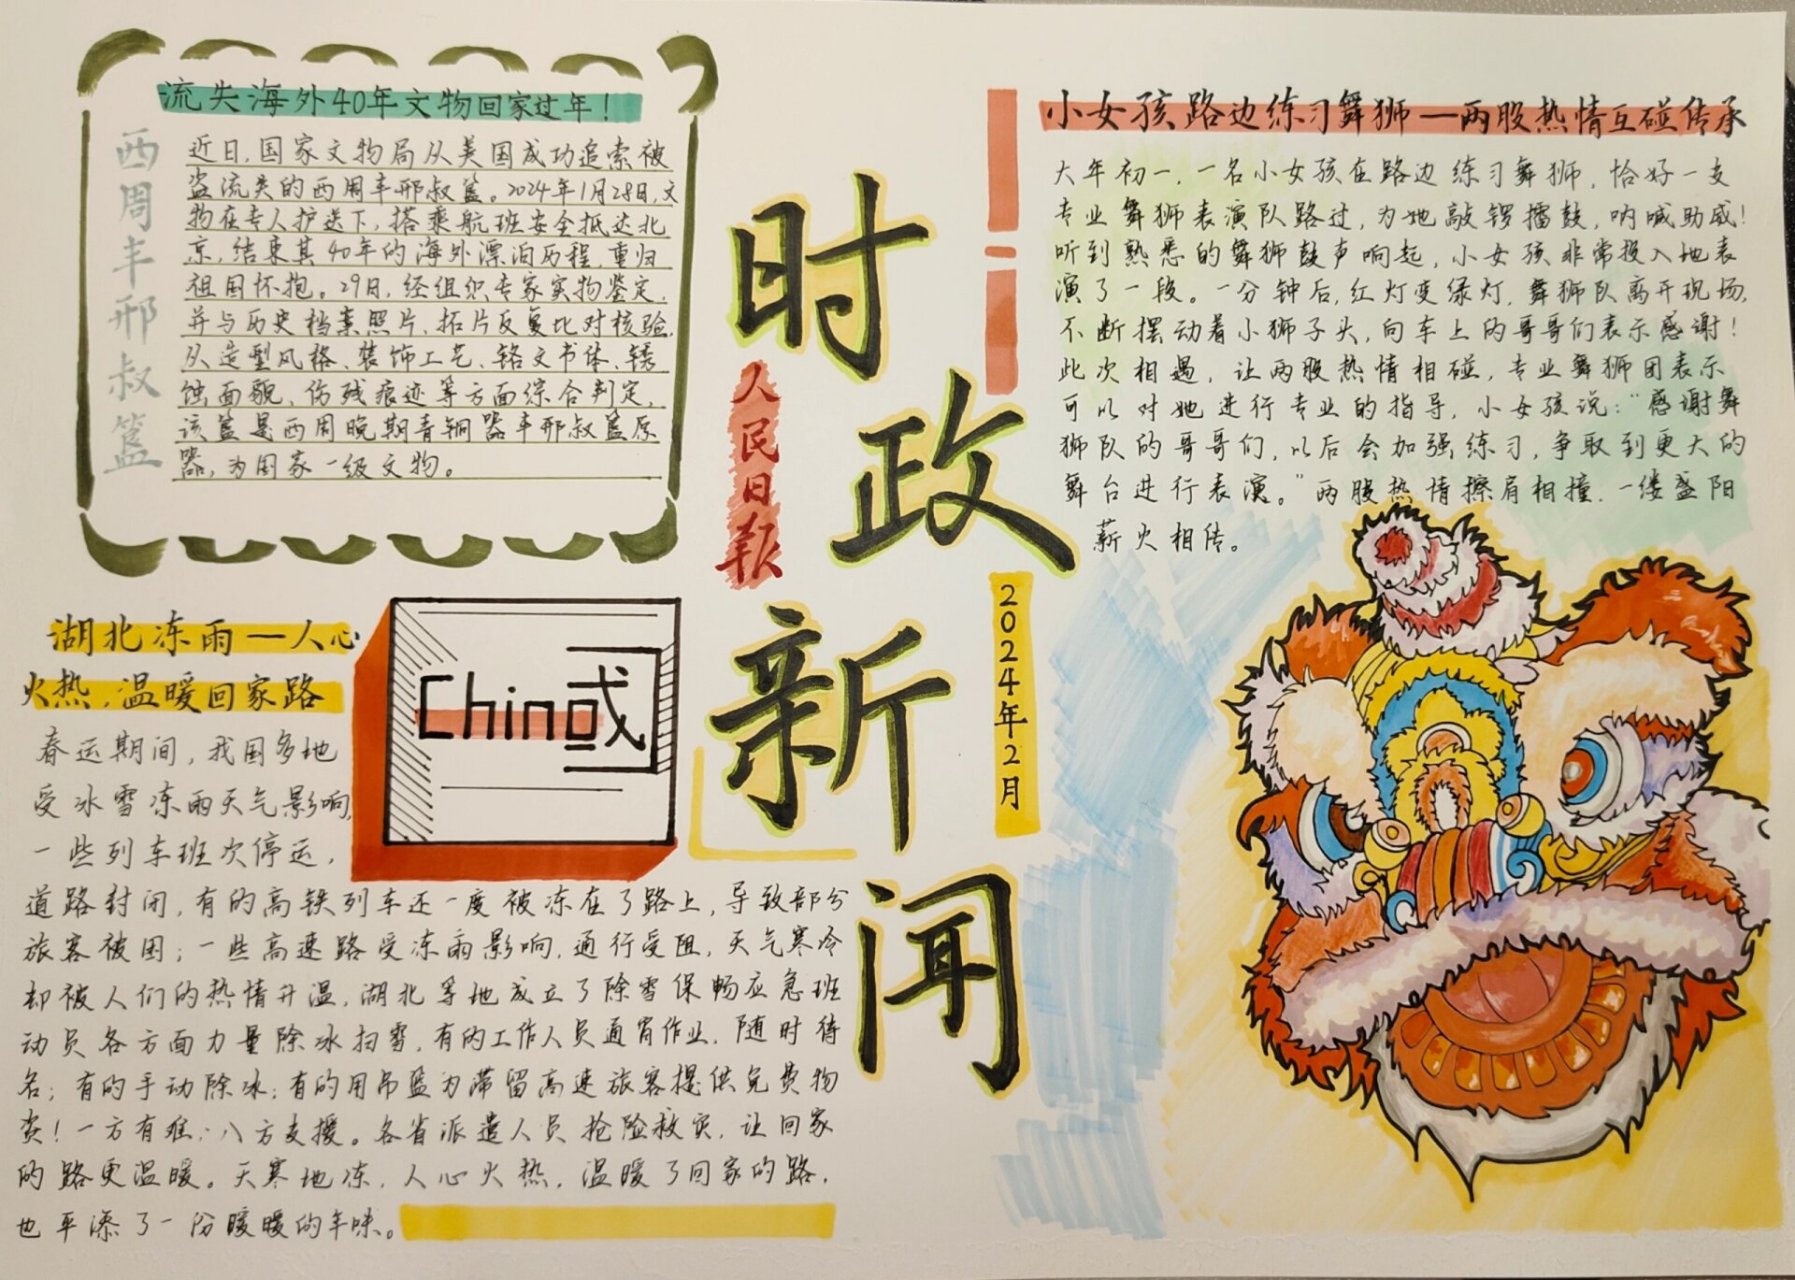 流失海外40年文物回家过年！
西周丰邢叔簋
近日，国家文物局从美国成功追索被
盗流失的西周丰邢叔簋。2024年1月28日，文
物在专人护送下，搭乘航班安全抵达北
京，结束其40年的海外漂泊历程，重归
祖国怀抱。29日，经组织专家实物鉴定，
并与历史档案照片、拓片反复比对核验，
从造型风格、装饰工艺、铭文书体、锈
蚀面貌、伤残痕迹等方面综合判定，
该簋是西周晚期青铜器丰邢叔簋原
器，为国家一级文物。
时政新闻
人民日报
2024年2月
小女孩路边练习舞狮—两股热情互碰传承
大年初一，一名小女孩在路边练习舞狮，恰好一支
专业舞狮表演队路过，为她敲锣擂鼓，呐喊助威！
听到熟悉的舞狮鼓声响起，小女孩非常投入地表
演了一段。一分钟后，红灯变绿灯，舞狮队离开现场，
不断摆动着小狮子头，向车上的哥哥们表示感谢！
此次相遇，让两股热情相碰，专业舞狮团表示
可以对她进行专业的指导，小女孩说：“感谢舞
狮队的哥哥们，以后会加强练习，争取到更大的
舞台进行表演。”两股热情擦肩相撞，一缕盛阳
薪火相传。
湖北冻雨—人心
火热，温暖回家路
China或
春运期间，我国多地
受冰雪冻雨天气影响，
一些列车班次停运，
道路封闭，有的高铁列车还一度被冻在了路上，导致部分
旅客被困；一些高速路受冻雨影响，通行受阻，天气寒冷
却被人们的热情升温，湖北等地成立了除雪保畅应急班
动员各方面力量除冰扫雪，有的工作人员通宵作业，随时待
名；有的手动除冰；有的用吊篮为滞留高速旅客提供免费物
资！一方有难，八方支援。各省派遣人员抢险救灾，让回家
的路更温暖。天寒地冻，人心火热，温暖了回家的路，
也平添了一份暖暖的年味。